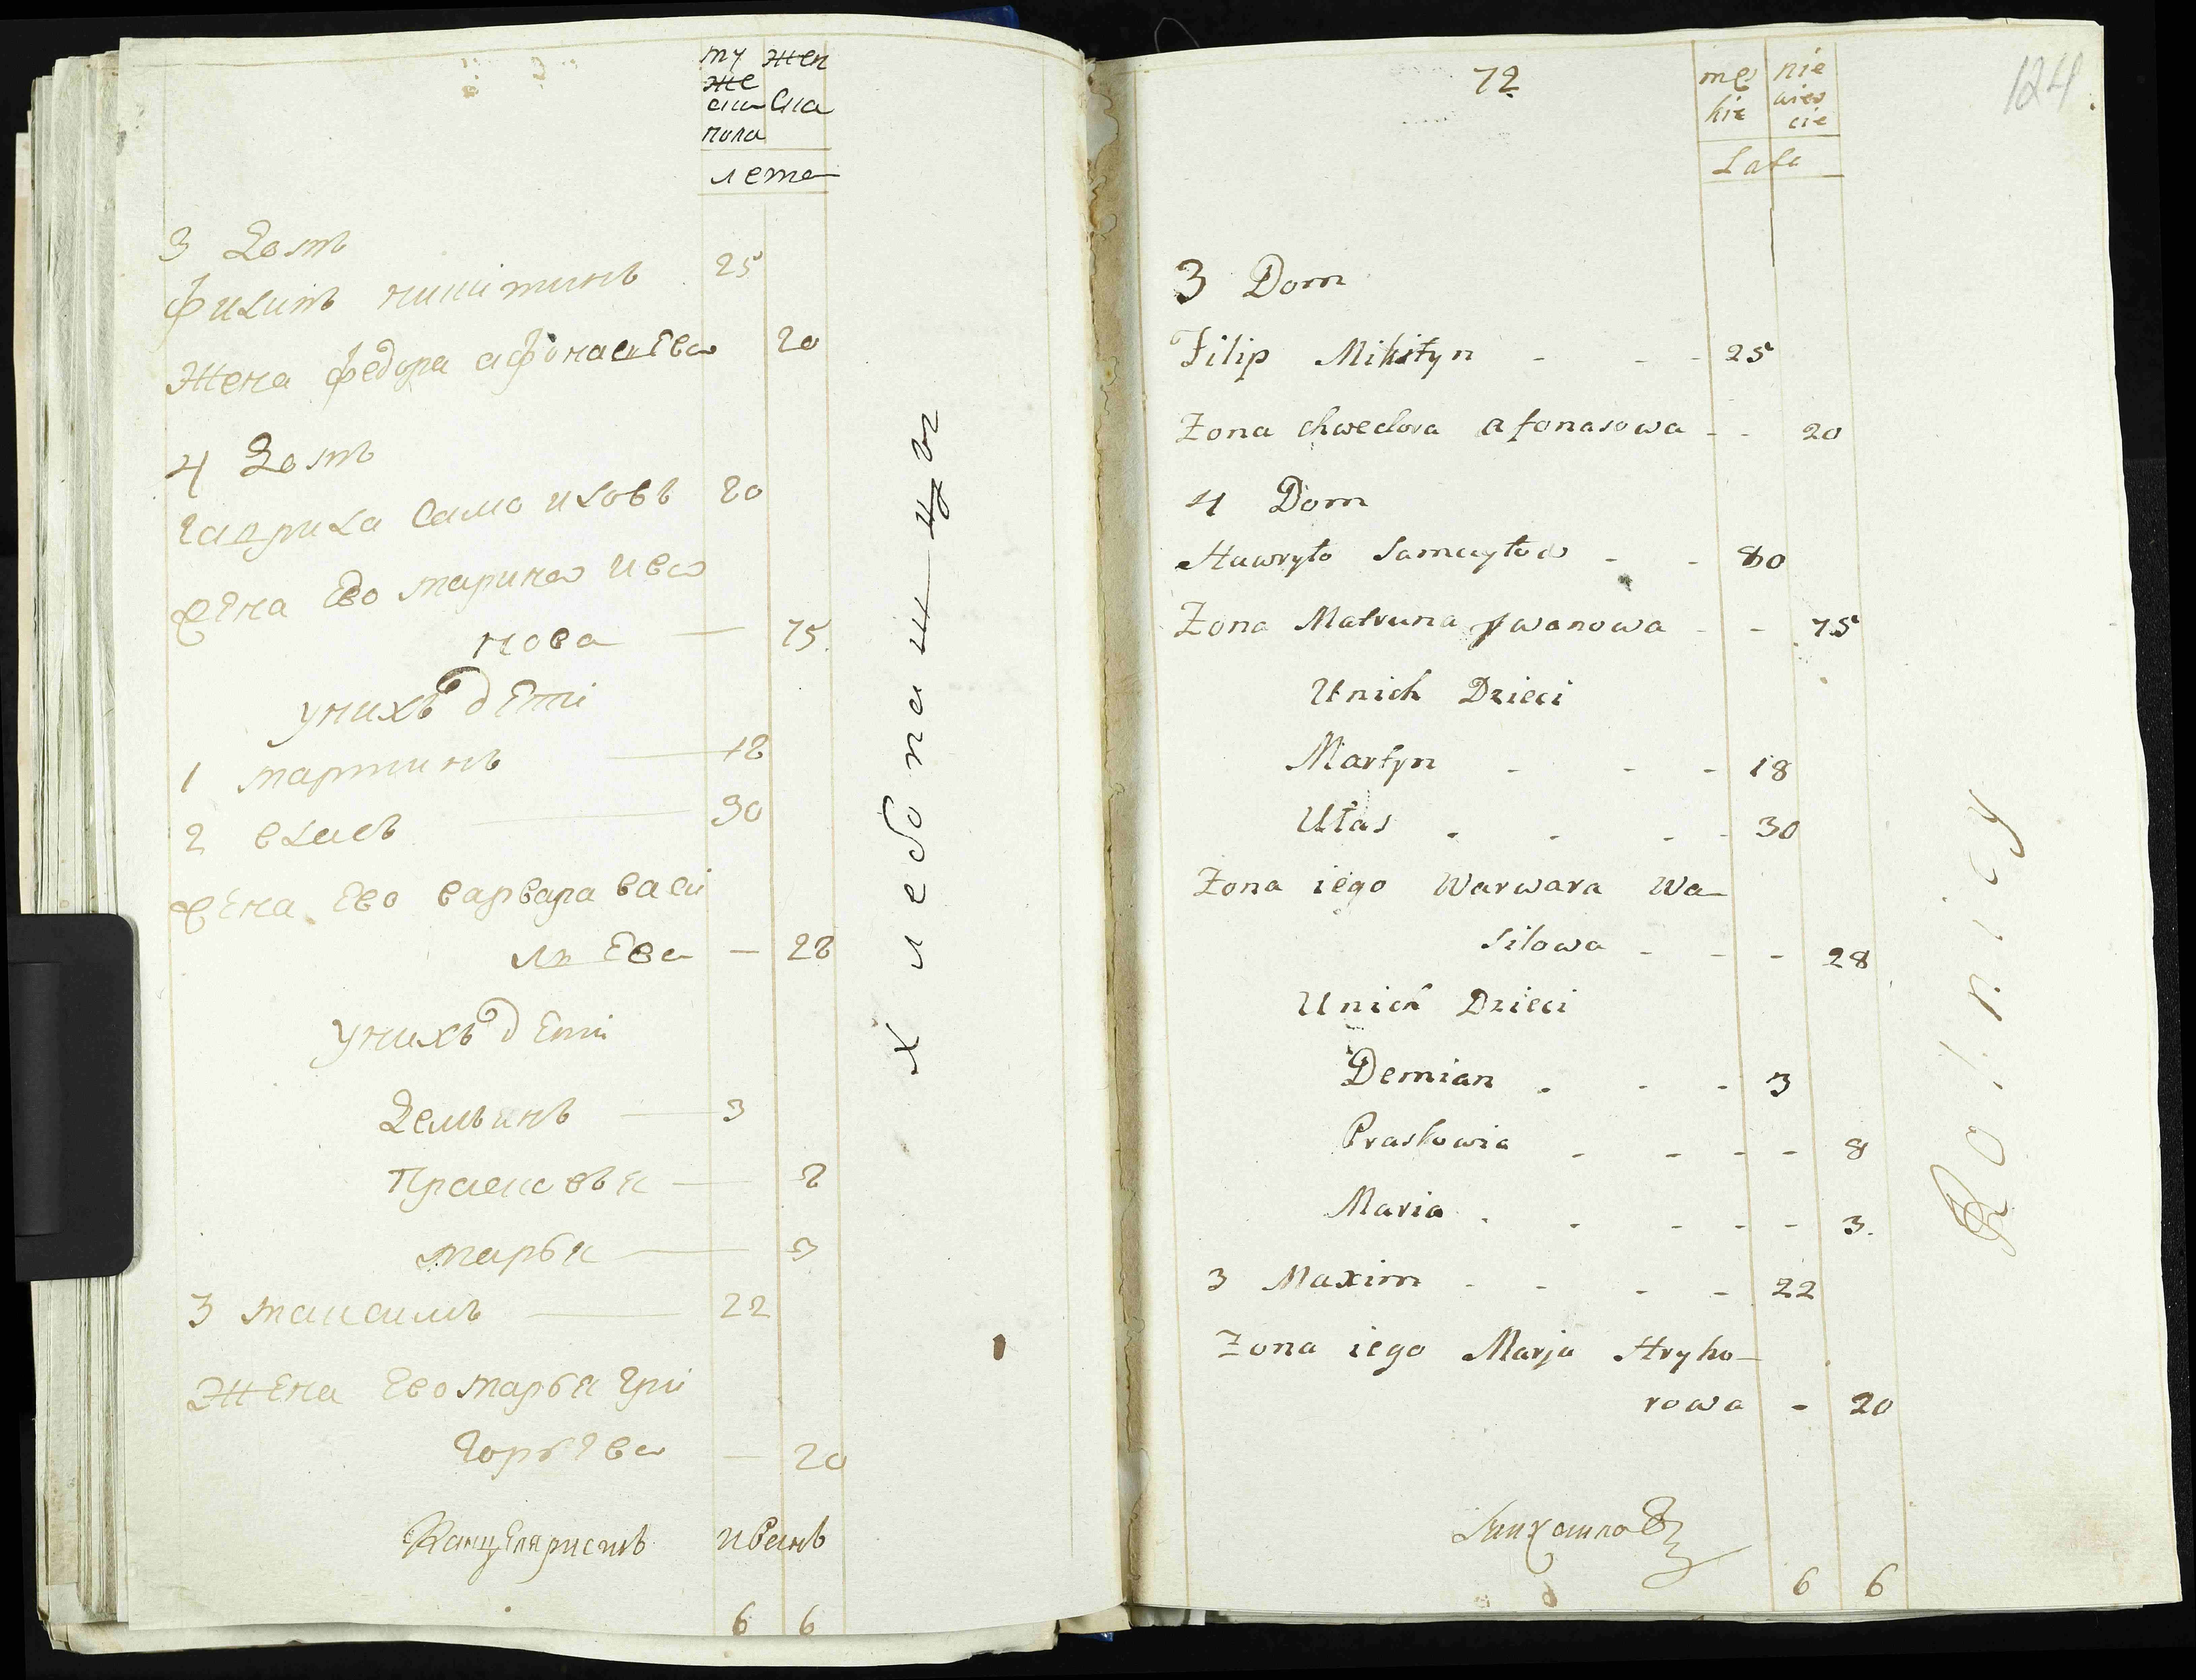 му жен
же
ска ска
пола
лета
3 Домъ
Филипъ никитинъ 25
Жена федора афонасьева 20
4 Домъ
гаврила самоиловъ 80
жена Ево марина ива
нова — 75.
унихъ дети
1 мартинъ — 18
2 власъ 30
жена Ево варвара васи
льева — 28
унихъ дети
Демьянъ — 3
Прасковья — 8
марья — 3
3 максимъ — 22
Жена Ево марья гри
горьева — 20
Канцеляристъ иванъ
6 6
хлебопашцы
72
124.
męs nie
kie wies
cie
Lata
3 Dom
Filip Mikityn - - - 25
Zona Chwedora afonasowa - - 20
4 Dom
Hawryło Samuyłow - - 80
Zona Matruna Jwanowa - - 75
Unich Dzieci
Martyn - - - 18
Ułas - - - - 30
Zona iego Warwara Wa-
silowa - - - 28
Unich Dzieci
Demian - - - 3
Praskowia - - - - 8
Maria - - - - - 3.
3 Maxim - - - - 22
Zona iego Marja Hryho-
rowa - 20
Михаиловъ
6 6
Rolnicy